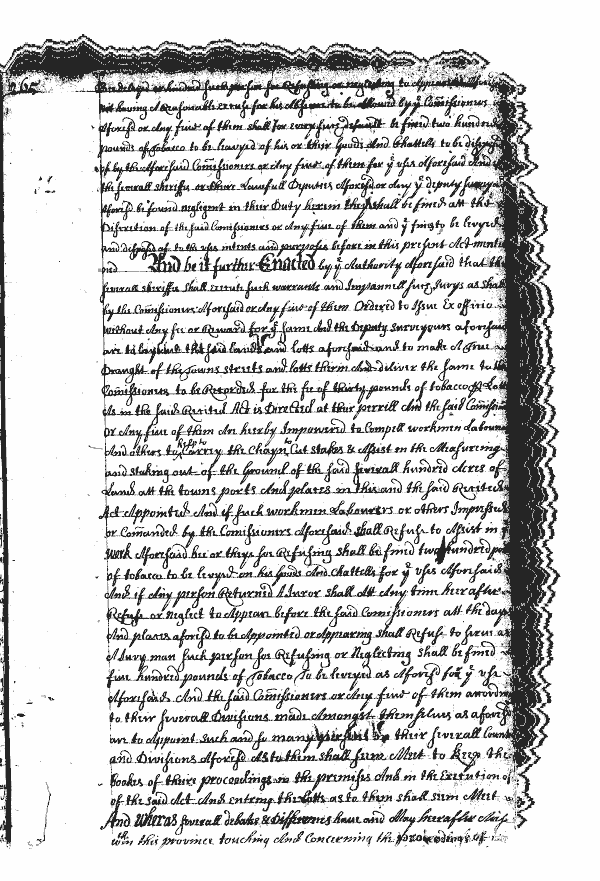 265
be delayed or hindred such person so Refusing or neglecting to Appear
not having A Reasonable excuse for his Absence to be allowed by yͤ Comissioners
Aforesd or Any five of them shall for every such default be fined two hundred
pounds of tobacco to be levyed of his or their Goods And Chattells to be
of by the Aforesaid Comissioners or Any five of them for yͤ uses Aforesaid And if
the severall sheriffs or there Lawfull Deputies Aforesd or Any yͤ deputy survey
Aforesd be found negligent in their Duty herein they shall be fined att the
Discretion of the said Comissioners or Any five of them and yͤ fines to be levyed
and disposed of to the uses intents and purposes before in this present Act menti
ond And be it further Enacted by yͤ Authority Aforesaid that the
severall sheriffs shall execute such warrants and Impannell such Jurys as shall
by the Comissioners Aforesaid or Any five of them Ordered to Issue Ex officio
without Any fee or Reward for yͤ same And the Deputy Surveyours aforesaid
are to lay out the said lands and lotts aforesaid and to make A True
Draught of the Towns streets and lotts them And deliver the same to the
Comissioners to be Recorded for the fee of thirty pounds of tobacco lott
As in the said Recited Act is Directed at their perrill And the said Comissioners
or Any five of them Are hereby Impowered to Compell workmen Labourers
And others to help to Carry the Chayn to Cut stakes & Assist in the Measureing
and staking out of the Ground of the said severall hundred Acres of
Land att the towns ports And places in this and the said Recited
Act Appointed And if such workmen Labourers or others Impressed
or Comanded by the Comissioners Aforesaid shall Refuse to Assist in
work Aforesaid hee or they so Refusing shall be fined two hundred
of tobacco to be levyed on his Goods And Chattells for yͤ uses Aforesaid
And if Any person Returned A Juror shall Att Any time hereafter
Refuse or neglect to Appear before the said Comissioners att the days
And places aforesd to be Appointed or Appearing shall Refuse to serve as
A Jury man such person so Refusing or Neglecting shall be fined
five hundred pounds of Tobacco To be levyed as Aforesd for yͤ use
Aforesaid And the said Comissioners or Any five of them
to their severall Divisions made Amongst themselves as aforesd
are to Appoint such and so many in their severall County
and Divisions Aforesd As to them shall seem Meet to keep the
Bookes of there proceedings in the premises And in the Execution of
of the said Act And entring the lotts as to them shall seem Meet
And Wheras severall debates & Differences have and May hereafter Arise
with in this province touching And Concerning the proceedings of